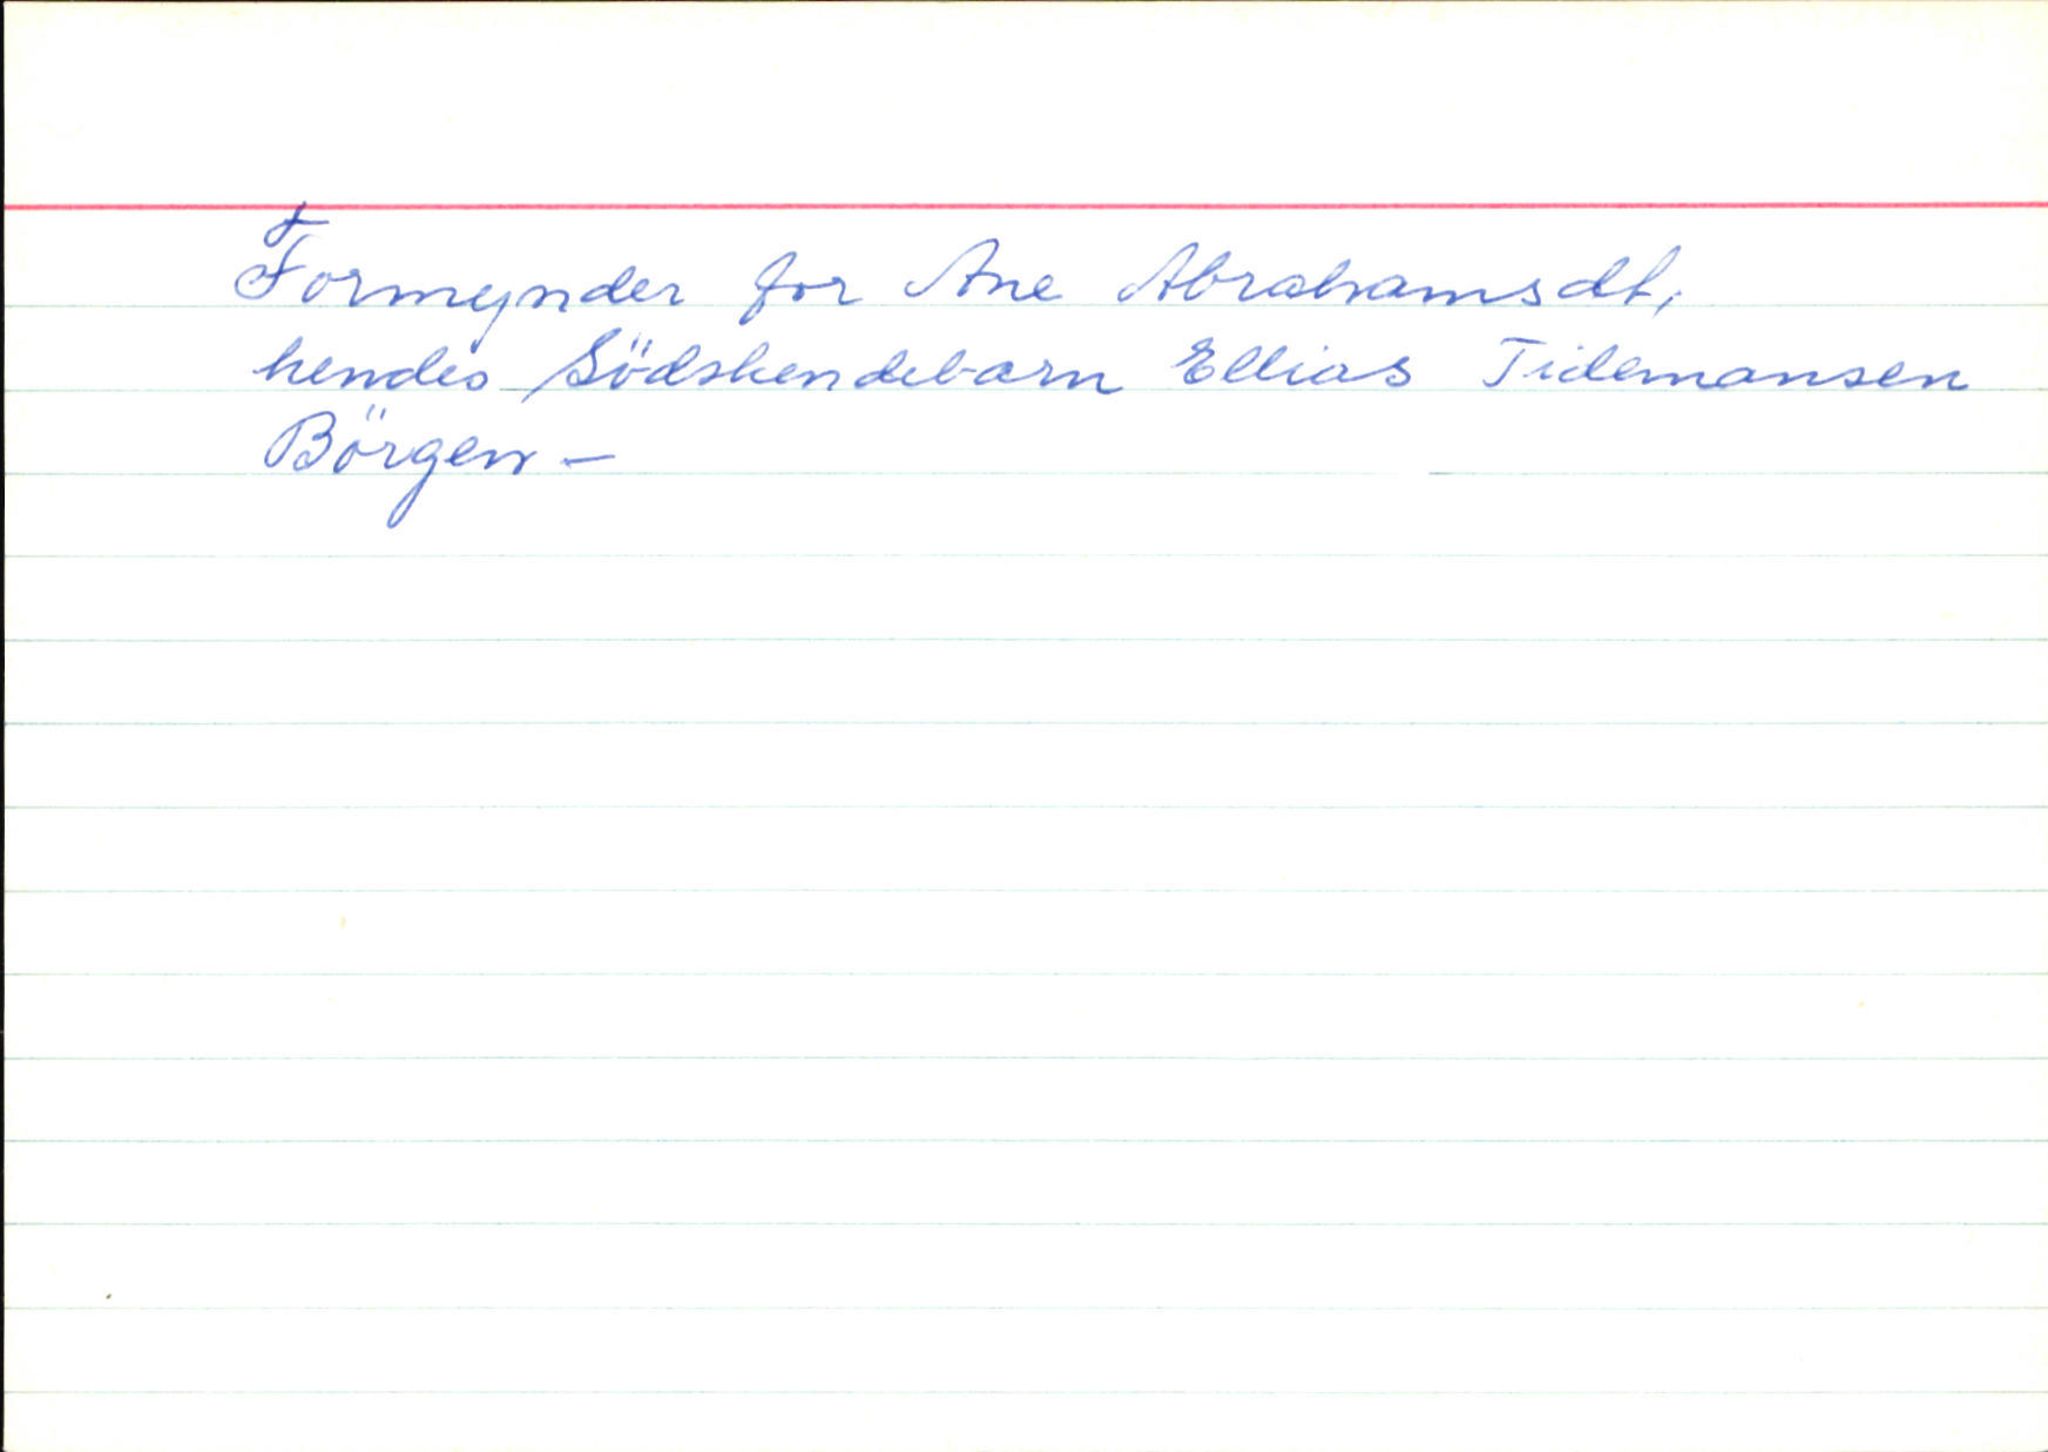 Formynder for Ane Abrahamsdt,
hendes Södskendebarn Ellias Tidemansen
Börgen –